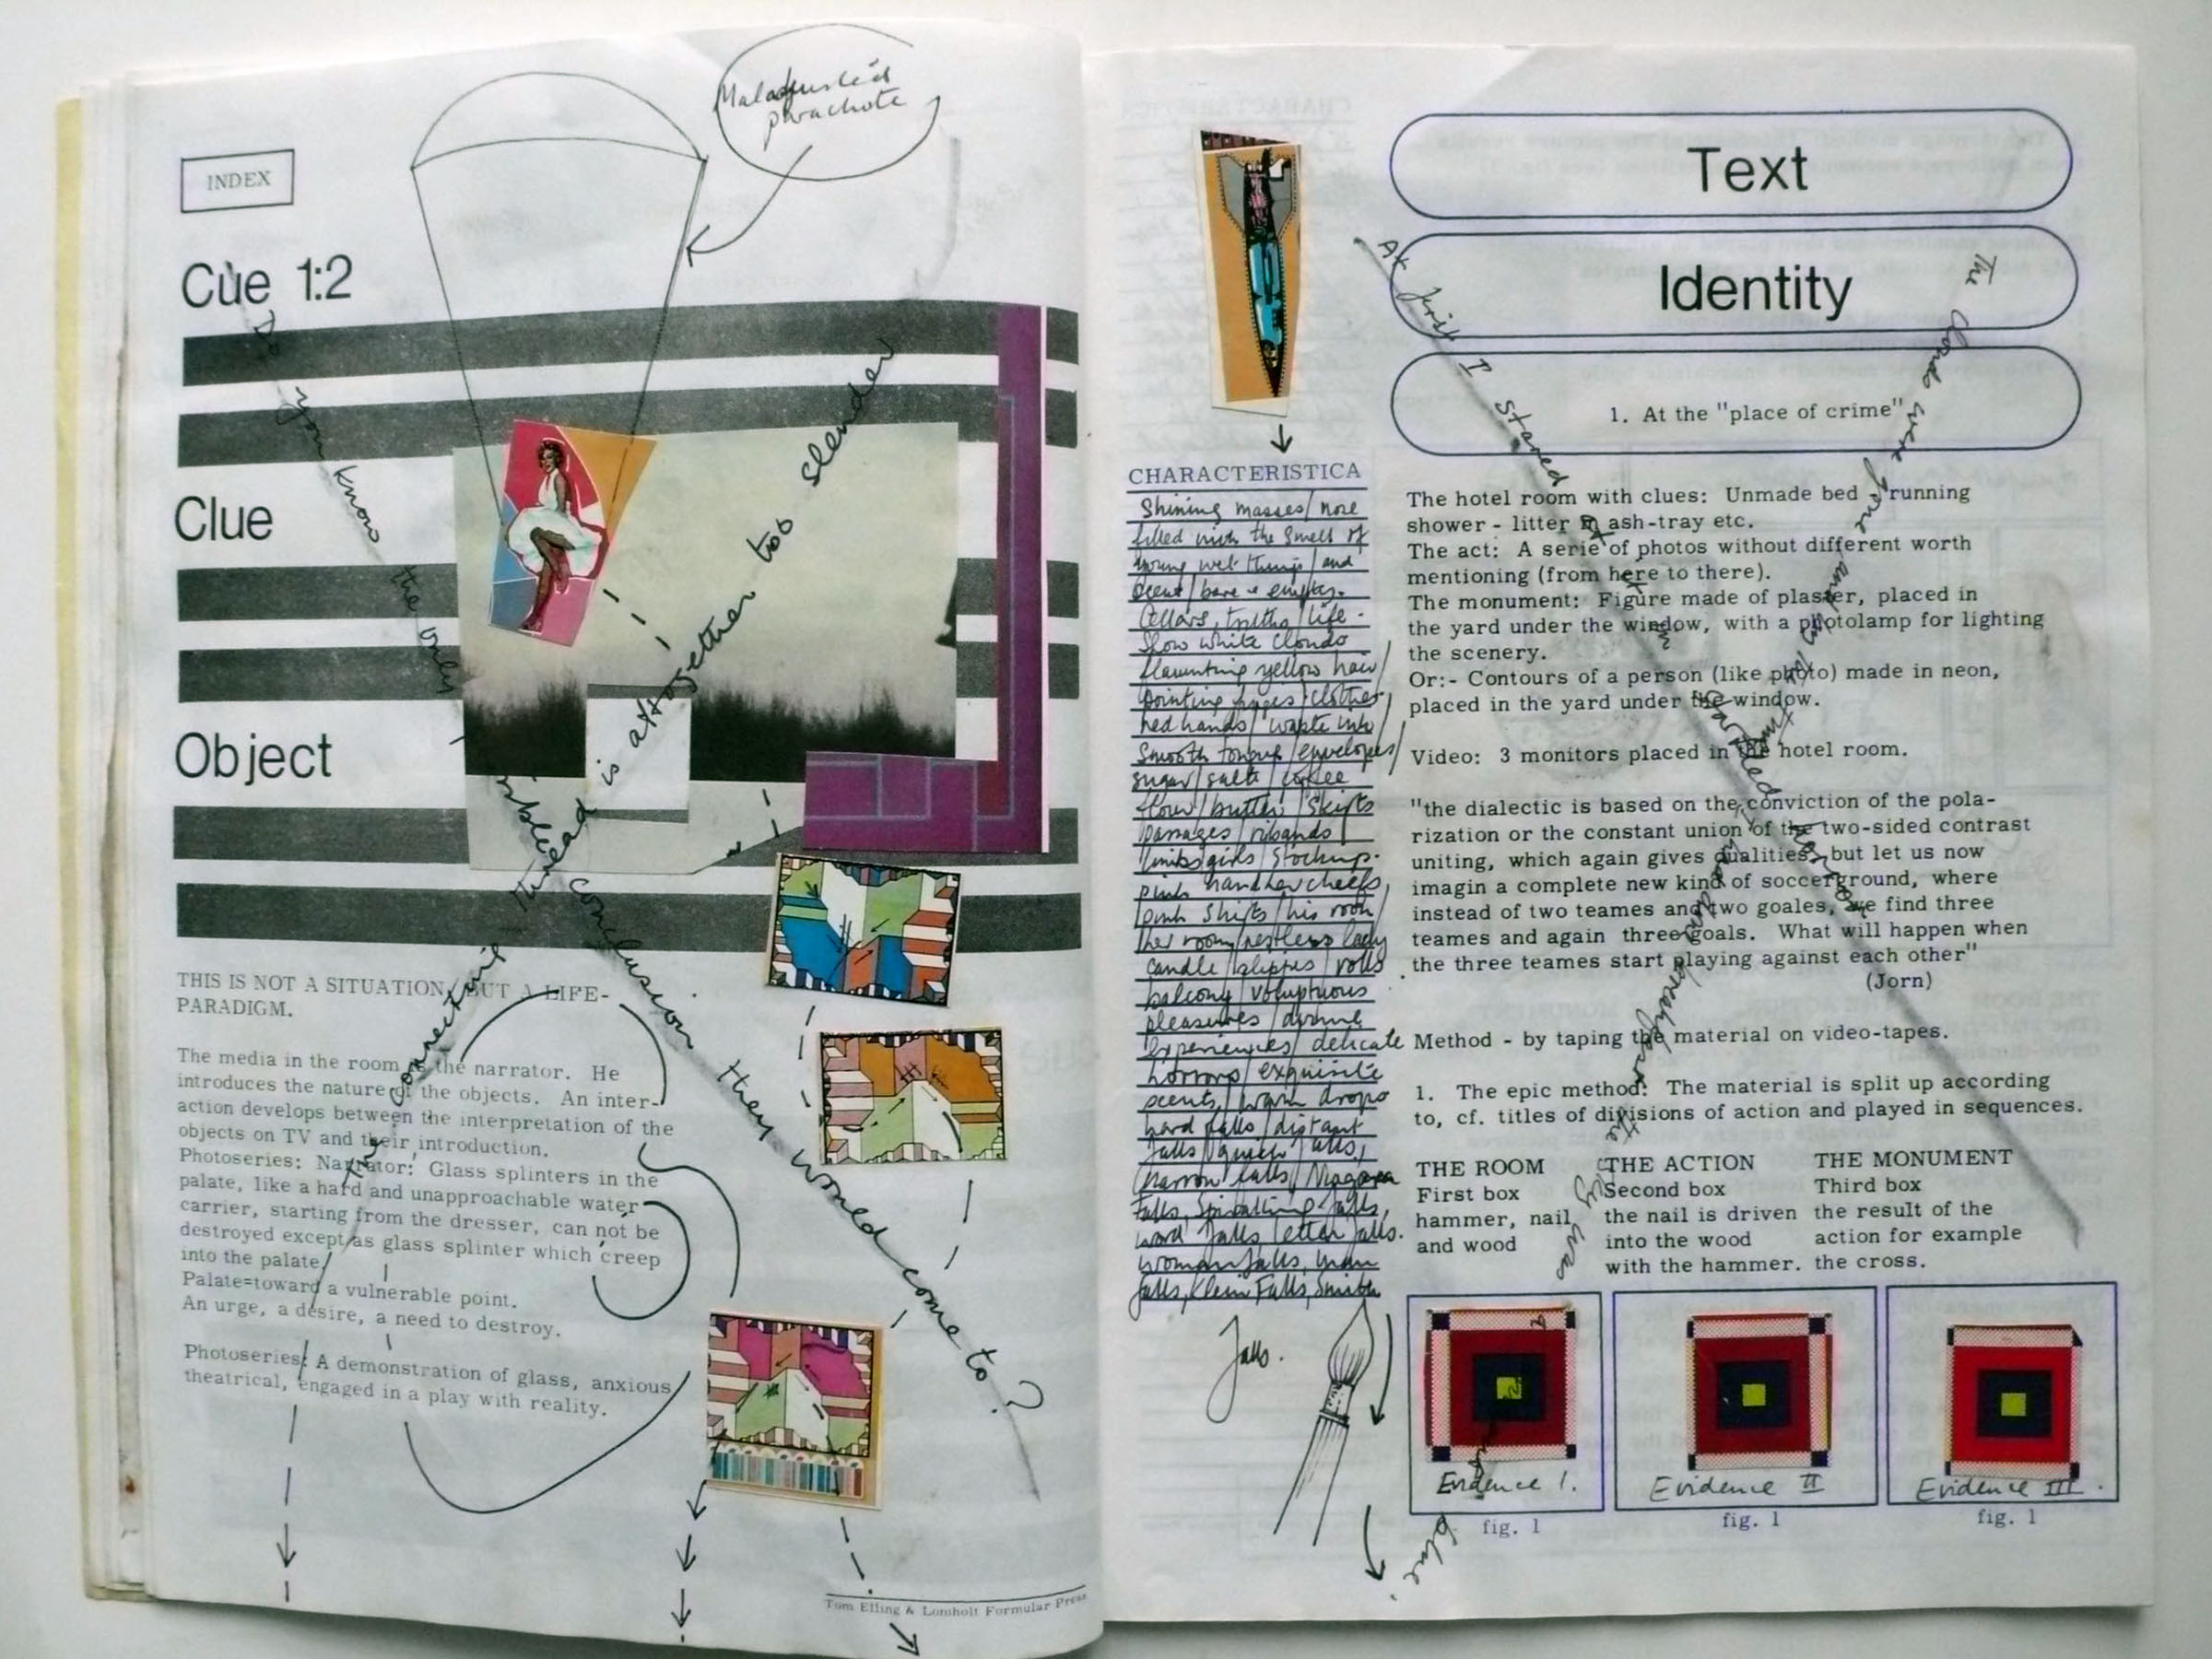 Maladjusted
parachote
INDEX
Cue 1:2
Clue
Object
Do you know the only
possible conclusion they would come to?
The connecting thread is altogether too slender
THIS IS NOT A SITUATION, BUT A LIFE-
PARADIGM.
The media in the room is the narrator. He
introduces the nature of the objects. An inter-
action develops between the interpretation of the
objects on TV and their introduction.
Photoseries: Narrator: Glass splinters in the
palate, like a hard and unapproachable water
carrier, starting from the dresser, can not be
destroyed except as glass splinter which creep
into the palate
Palate=toward a vulnerable point.
An urge, a desire, a need to destroy.
Photoseries: A demonstration of glass, anxious
theatrical, engaged in a play with reality.
Tom Elling & Lomholt Formular Press
CHARACTERISTICA
Shining masses/nose
filled with the smell of
young wet things/and
scent/bare & empty.
Cellars, truths/life.
Slow white clouds
flaunting yellow hair/
pointing pages/clothes.
red hands/waste into
smooth tongue/envelopes/
sugar/salt/coffee
flour/butter/skirts
passages/ribands/
limbs/girls/stockup.
pink handkerchiefs,
pink shifts/his room/
her room/restless lady
candle/slippes/rolls
balcony/voluptuous
pleasures/divine
experiencies/delicate
horrors/exquisite
scents, warm drops
hard falls/distant
falls/quick falls,
narrow falls/Niagara
Falls, Spiralling-falls,
word falls letter falls.
woman falls, man
falls, Klein Falls, Smith
falls.
Text
Identity
1. At the "place of crime"
The hotel room with clues: Unmade bed - running
shower - litter in ash-tray etc.
The act: A serie of photos without different worth
mentioning (from here to there).
The monument: Figure made of plaster, placed in
the yard under the window, with a photolamp for lighting
the scenery.
Or:- Contours of a person (like photo) made in neon,
placed in the yard under the window.
Video: 3 monitors placed in the hotel room.
"the dialectic is based on the conviction of the pola-
rization or the constant union of the two-sided contrast
uniting, which again gives qualities, but let us now
imagin a complete new kind of soccerground, where
instead of two teames and two goales, we find three
teames and again three goals. What will happen when
the three teames start playing against each other"
(Jorn)
Method - by taping the material on video-tapes.
1. The epic method: The material is split up according
to, cf. titles of divisions of action and played in sequences.
THE ROOM
First box
hammer, nail
and wood
THE ACTION
Second box
the nail is driven
into the wood
with the hammer.
THE MONUMENT
Third box
the result of the
action for example
the cross.
At first I stared
The clouds were gone and
the sky was
blue.
Evidence I.
fig. 1
Evidence II
fig. 1
Evidence III.
fig. 1